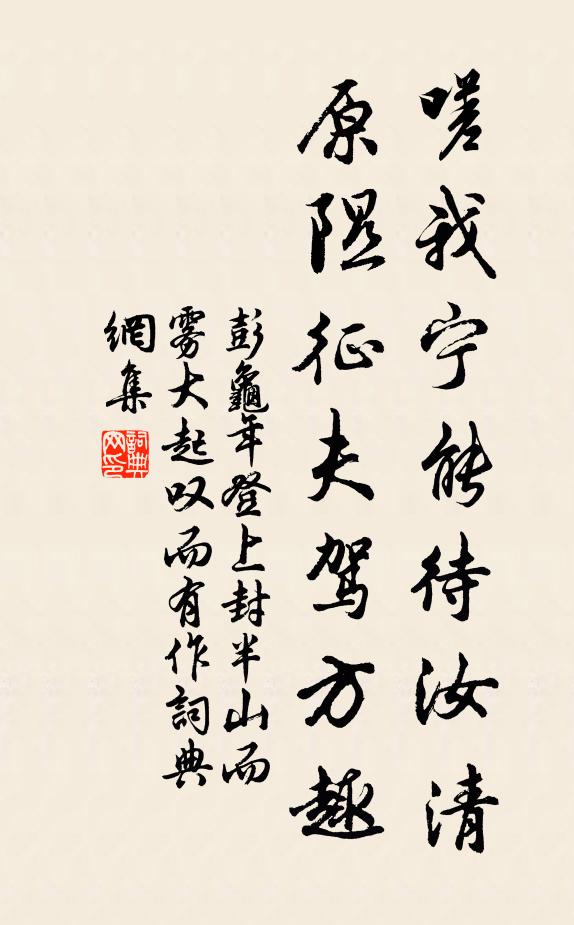 嗟我宁能待汝清
原隰征夫驾方趣
彭龜年登上封半山而
雾大起叹而有作詞典
網集
詞典网印